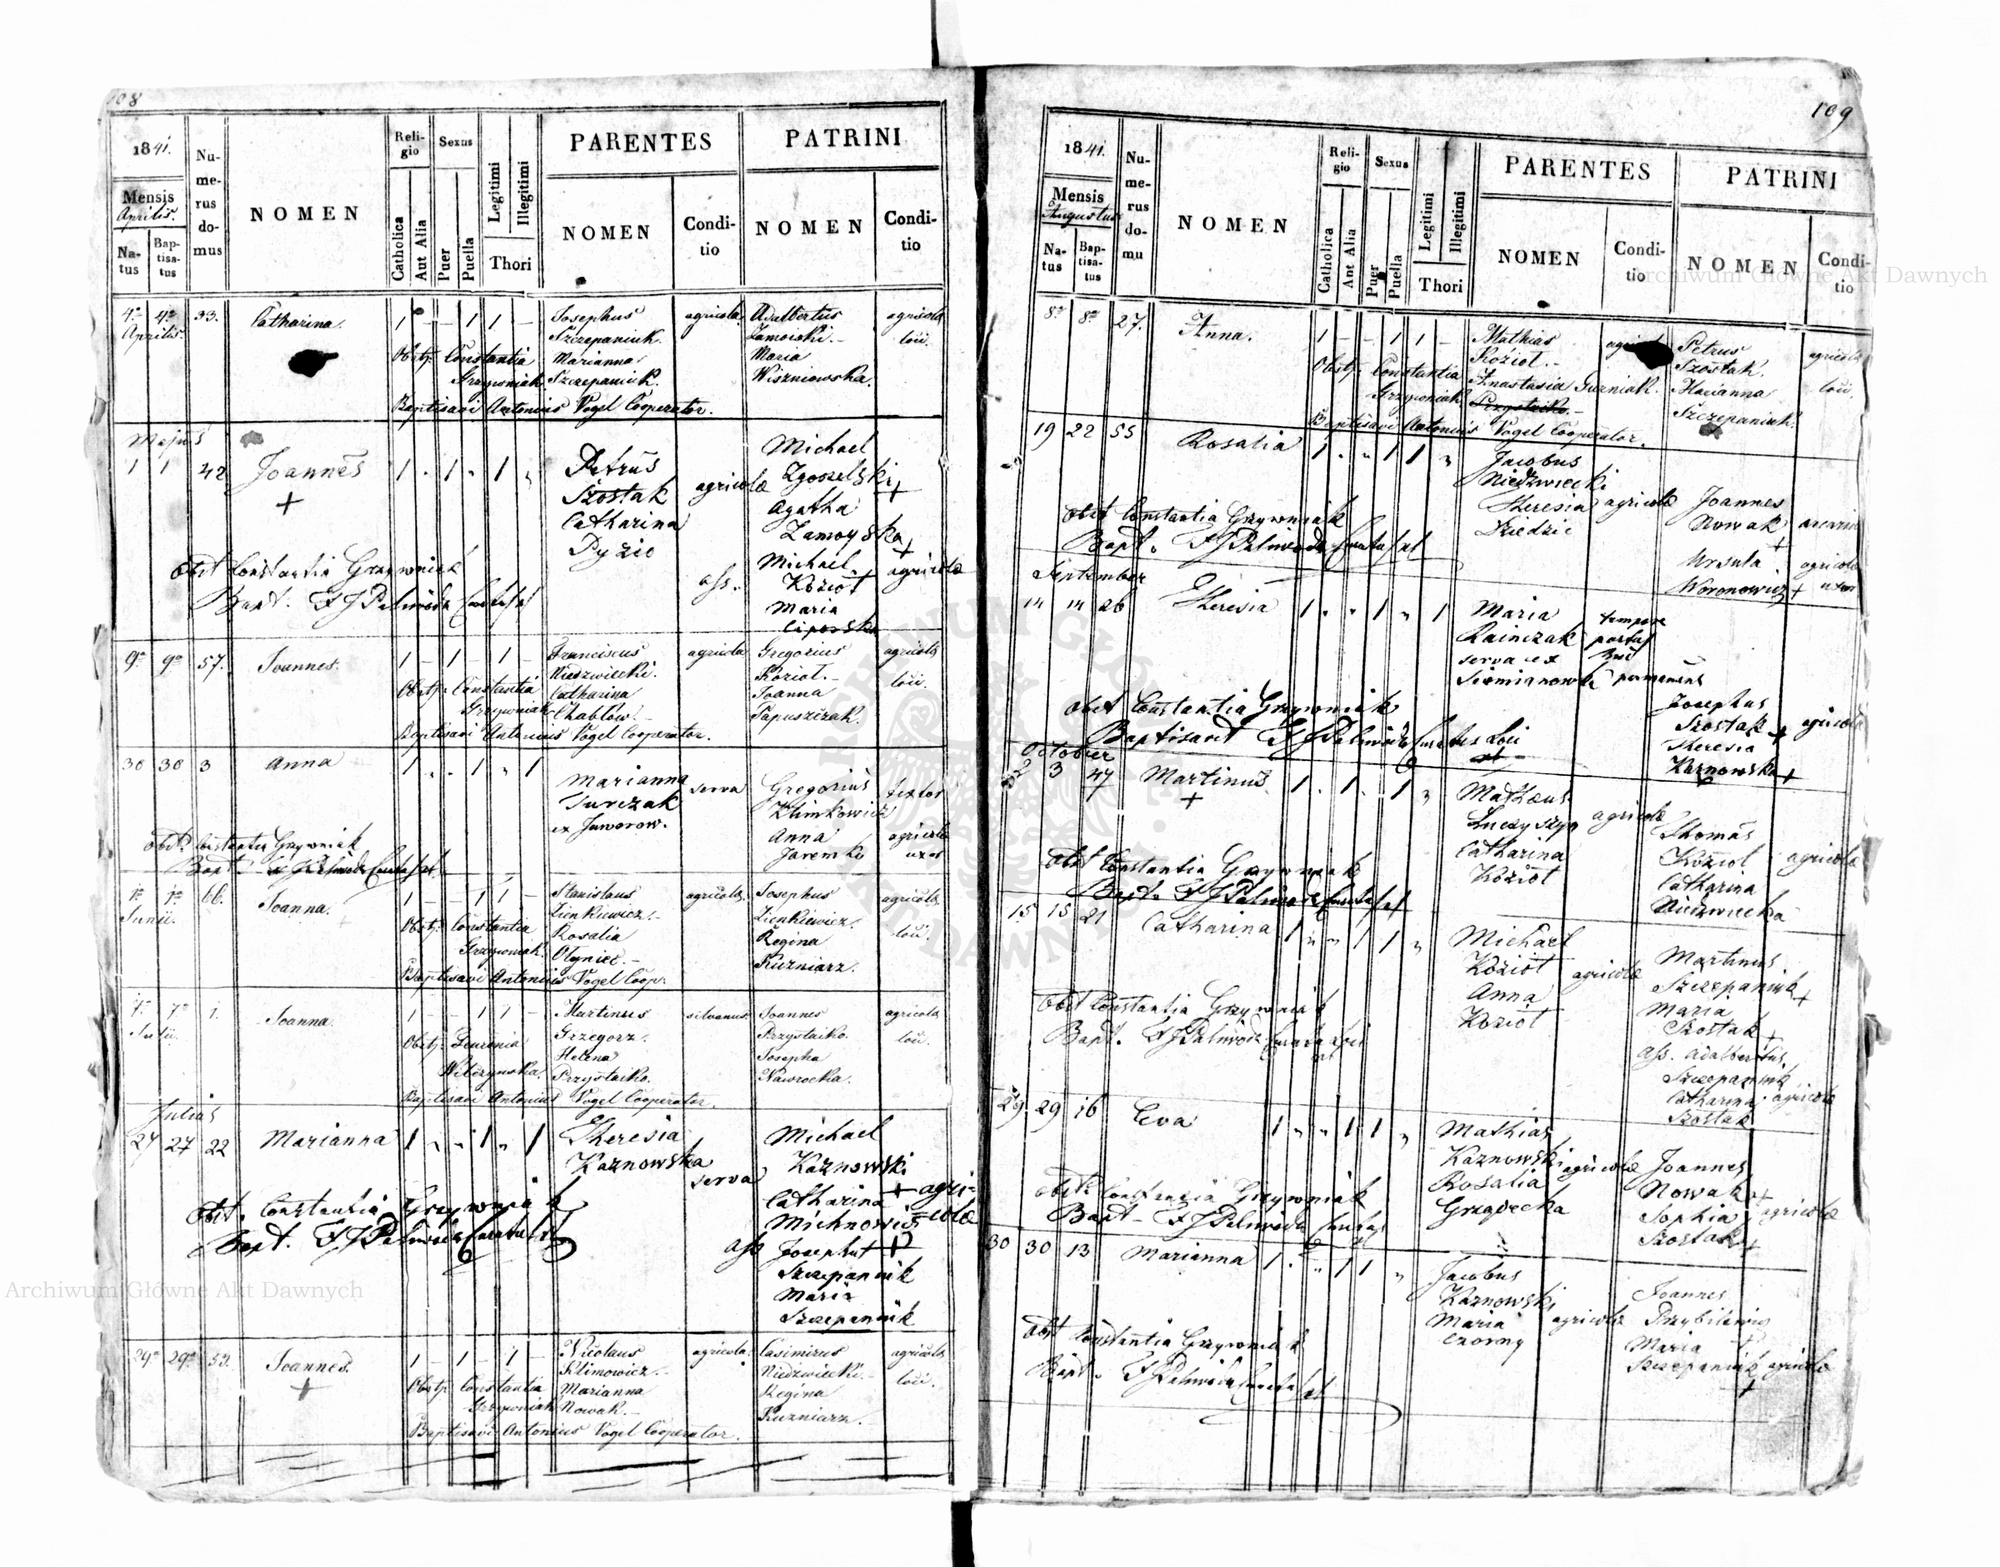 108
1841.
Mensis
Aprilis.
Natus
Baptisatus
Numerus domus
NOMEN
Religio
Catholica
Aut Alia
Sexus
Puer
Puella
Legitimi
Illegitimi
Thori
PARENTES
NOMEN
Conditio
PATRINI
NOMEN
Conditio
4ta 4ta 33. Catharina. 1 - - 1 1 - Josephus agricola Adalbertus agricola
Aprilis. Szczepaniuk. Zamoiski.- loci.
Obstp. Constantia Marianna Maria
Grzywniak Szczepaniuk. Wiszniowska.
Baptisavi Antonius Vogel Cooperator.
Majus
1 1 42 Joannes 1 1 1 Petrus Michael
+ Szostak agricolae Zgoszelski +
Catharina Agatha
Pyzio Zamoyska +
Michael agricolae
Obst Constantia Grzywniak ass. Kozioł +
Bapt. Maria
Liposska
9na 9na 57. Joannes. 1 - 1 - 1 - Franciscus agricola Gregorius agricola
Niedzwiecki. Kozioł.- loci.
Obstp. Constantia Catharina Joanna
Grzywniak Chablow.- Papuszczak.
Baptisavi Antonius Vogel Cooperator.
30 30 3 Anna 1 1 1 Marianna serva Gregorius textor
Jurczak Klimkowicz
ex Jaworow. Anna agricolae
Obst. Constantia Grzywniak Jaremko uxor
Bapt.
1a 1a 66. Joanna. 1 - - 1 1 - Stanislaus agricola. Josephus agricola
Junii. Zienkiewicz.- Zienkiewicz. loci.
Obstp. Constantia Rosalia Regina
Grzywniak. Olyniec.- Kuzniarz.
Baptisavi Antonius Vogel Coop.
7a 7a 1. Joanna. 1 - - 1 1 - Martinus silvanus Joannes agricola
Julii. Grzegorz. Przystaiko. loci.
Obstp. Helena Josepha
Przystaiko. Nawrocka.
Baptisavi Antonius Vogel Cooperator.
Julius
27 27 22 Marianna 1 1 1 Theresia Michael
Kaznowska serva Kaznowski
Catharina + agricolae
Obst. Constantia Grzywniak Michnowicz
Bapt. ass Josephus +
Szczepaniuk
Maria
Szczepaniuk
29a 29a 53. Joannes. 1 - 1 - 1 - Nicolaus agricola. Casimirus agricola
+ Klimowicz.- Niedzwiecki.- loci.
Obstp. Constantia Marianna Regina
Grzywniak Nowak.- Kuzniarz.
Baptisavi Antonius Vogel Cooperator.
109
1841.
Mensis
Augustus
Natus
Baptisatus
Numerus domu
NOMEN
Religio
Catholica
Ant Alia
Sexus
Puer
Puella
Legitimi
Illegitimi
Thori
PARENTES
NOMEN
Conditio
PATRINI
NOMEN
Conditio
8a 8a 27. Anna. 1 - - 1 1 - Mathias Petrus agricola
Kozioł.- Szostak. loci.
Obstp. Constantia Anastasia Guzniak. Marianna
Grzywniak Przystaiko.- Szczepaniuk.
Baptisavi Antonius Vogel Cooperator.
19 22 55 Rosalia 1 1 1 Jacobus
Niedzwiecki Joannes
Theresia agricolae Nowak +
Obst Constantia Grzywniak Dziedzic Ursula agricolae
Bapt. Woronowicz + uxor
September
14 14 26 Theresia 1 1 1 Maria tempore
Rainczak
serva ex
Siemianowka
Obst Constantia Grzywniak Josephus
Baptisavit Szostak + agricolae
Theresia
Kaznowska +
October
2 3 47 Martinus 1 1 1 Mathaeus
+ agricolae
Catharina Thomas
Kozioł Kozioł agricolae
Obst Constantia Grzywniak Catharina
Bapt. Niedzwiecka
15 15 21 Catharina 1 1 1 Michael
Kozioł agricolae Martinus
Anna Szczepaniuk +
Kozioł Maria
Obst Constantia Grzywniak Szostak +
Bapt. ass. Adalbertus
Szczepaniuk
Catharina agricolae
Szostak
29 29 16 Eva 1 1 1 Mathias
Kaznowski agricolae Joannes
Rosalia Nowak +
Obst. Constantia Grzywniak Grządecka Sophia agricolae
Bapt. Szostak +
30 30 13 Marianna 1 1 1 Jacobus
Kaznowski agricolae Joannes
Maria
Czorny Maria
Obst Constantia Grzywniak Szczepaniuk agricolae
Bapt. +
Archiwum Główne Akt Dawnych
Archiwum Główne Akt Dawnych
ARCHIWUM GŁÓWNE AKT DAWNYCH